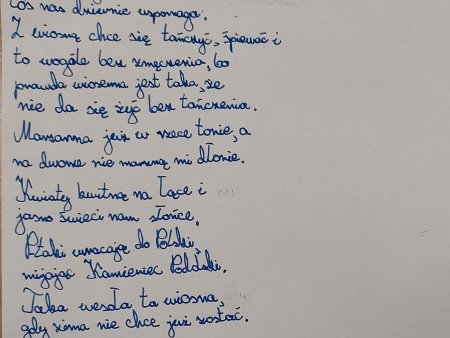 Coś nas dziwnie wspomaga.
Z wiosną chce się tańczyć, śpiewać i
to wogóle bez zmęczenia, bo
prawda wiosenna jest taka, że
nie da się żyć bez tańczenia.
Marzanna już w rzece tonie, a
na dworze nie marzną mi dłonie.
Kwiaty kwitną na łące i
jasno świeci nam słońce.
Ptaki wracają do Polski,
mijając Kamieniec Podolski.
Taka wesoła ta wiosna,
gdy zima nie chce już zostać.